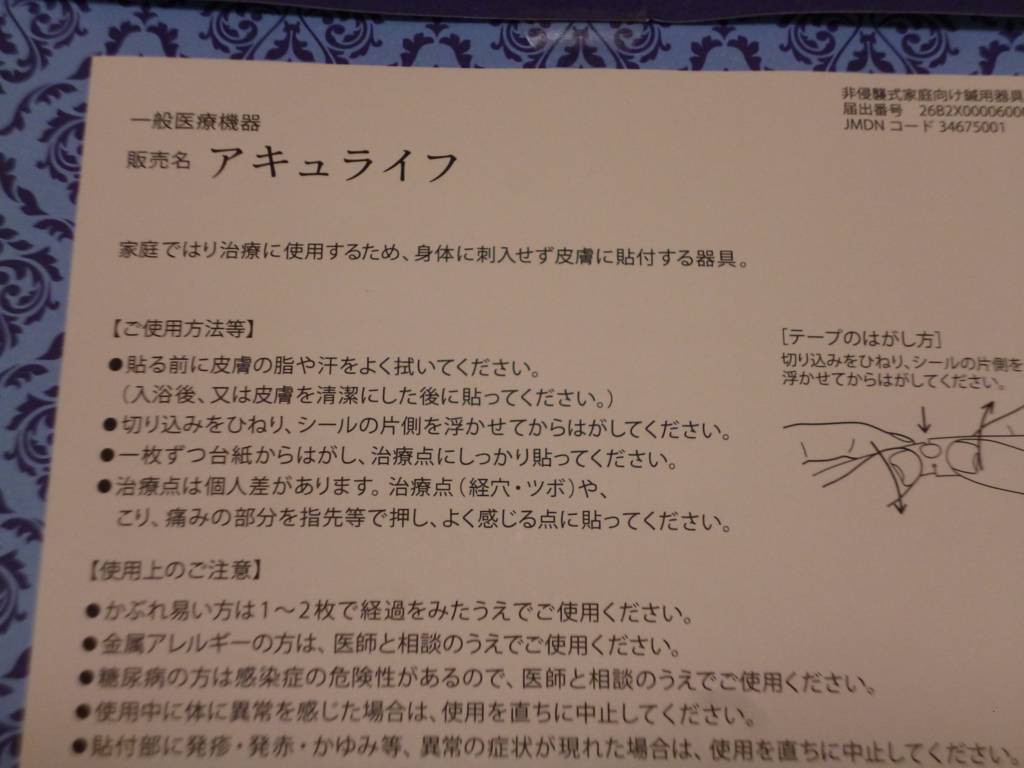 非侵襲式家庭向け鍼用器具
届出番号 26B2X00006000
JMDN コード 34675001
一般医療機器
販売名 アキュライフ
家庭ではり治療に使用するため、身体に刺入せず皮膚に貼付する器具。
【ご使用方法等】
●貼る前に皮膚の脂や汗をよく拭いてください。
（入浴後、又は皮膚を清潔にした後に貼ってください。）
●切り込みをひねり、シールの片側を浮かせてからはがしてください。
●一枚ずつ台紙からはがし、治療点にしっかり貼ってください。
●治療点は個人差があります。治療点（経穴・ツボ）や、
こり、痛みの部分を指先等で押し、よく感じる点に貼ってください。
［テープのはがし方］
切り込みをひねり、シールの片側を
浮かせてからはがしてください。
【使用上のご注意】
●かぶれ易い方は1～2枚で経過をみたうえでご使用ください。
●金属アレルギーの方は、医師と相談のうえでご使用ください。
●糖尿病の方は感染症の危険性があるので、医師と相談のうえでご使用ください。
●使用中に体に異常を感じた場合は、使用を直ちに中止してください。
●貼付部に発疹・発赤・かゆみ等、異常の症状が現れた場合は、使用を直ちに中止してください。